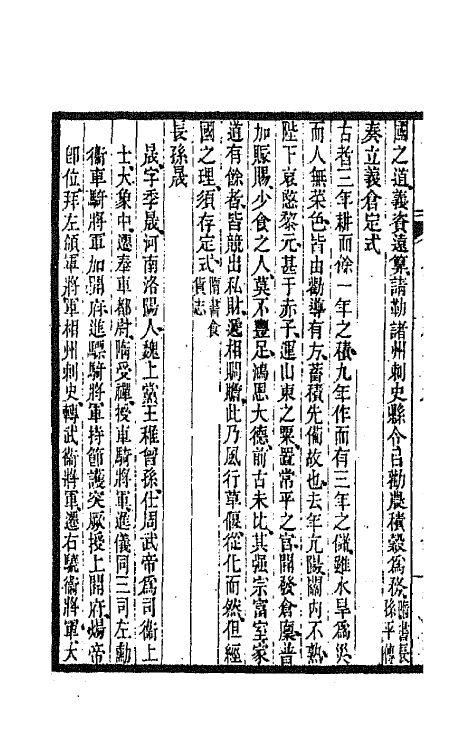 國之道義資遠算請勒諸州刺史縣令曰勸農積穀爲務隋書長孫平傳
奏立義倉定式
古者三年耕而餘一年之積九年作而有三年之儲雖水旱爲災
而人無菜色皆由勸導有方蓄積先備故也去年亢陽關內不熟
陛下哀愍黎元甚于赤子運山東之粟置常平之官開發倉廩普
加賑賜少食之人莫不豐足鴻恩大德前古未比其强宗富室家
道有餘者皆競出私財遞相賙贍此乃風行草偃從化而然但經
國之理須存定式隋書食貨志
長孫晟
晟字季晟河南洛陽人魏上黨王稚曾孫仕周武帝爲司衞上
士大象中遷奉車都尉隋受禪授車騎將軍進儀同三司左勳
衞車騎將軍加開府進驃騎將軍持節護突厥授上開府煬帝
卽位拜左領軍將軍相州刺史轉武衞將軍遷右驍衞將軍大